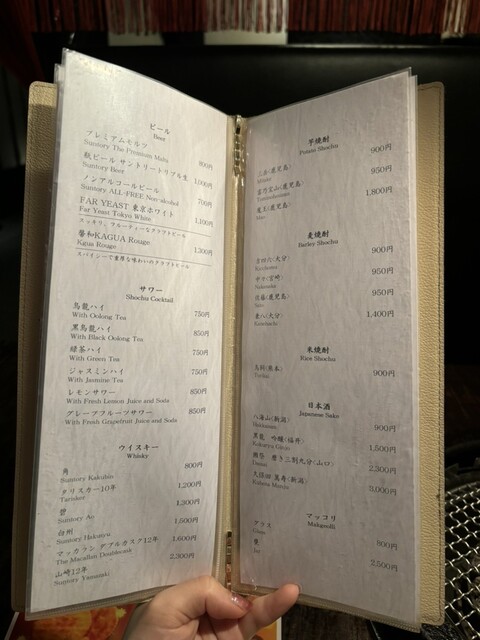 ビール
Beer
プレミアムモルツ 800円
Suntory The Premium Malts
瓶ビール サントリートリプル生 1,000円
Suntory Beer
ノンアルコールビール 700円
Suntory ALL-FREE Non-alcohol
FAR YEAST 東京ホワイト 1,100円
Far Yeast Tokyo White
スッキリ、フルーティーなクラフトビール
馨和KAGUA Rouge 1,300円
Kgua Rouge
スパイシーで重厚な味わいのクラフトビール
サワー
Shochu Cocktail
烏龍ハイ 750円
With Oolong Tea
黒烏龍ハイ 850円
With Black Oolong Tea
緑茶ハイ 750円
With Green Tea
ジャスミンハイ 750円
With Jasmine Tea
レモンサワー 850円
With Fresh Lemon Juice and Soda
グレープフルーツサワー 850円
With Fresh Grapefruit Juice and Soda
ウイスキー
Whisky
角 800円
Suntory Kakubin
タリスカー10年 1,200円
Tarisker
碧 1,300円
Suntory Ao
白州 1,500円
Suntory Hakusyu
マッカラン ダブルカスク12年 1,600円
The Macallan Doublecask
山崎12年 2,300円
Suntory Yamazaki
芋焼酎
Potato Shochu
三岳(鹿児島) 900円
Mitake
富乃宝山(鹿児島) 950円
Tominohouzan
魔王(鹿児島) 1,800円
Mao
麦焼酎
Barley Shochu
吉四六(大分) 900円
Kicchomu
中々(宮崎) 950円
Nakanaka
佐藤(鹿児島) 950円
Sato
兼八(大分) 1,400円
Kanehachi
米焼酎
Rice Shochu
鳥飼(熊本) 900円
Torikai
日本酒
Japanese Sake
八海山(新潟) 900円
Hakkaisan
黒龍 吟醸(福井) 1,500円
Kokuryu Ginjo
獺祭 磨き三割九分(山口) 2,300円
Dassai
久保田 萬寿(新潟) 3,000円
Kubota Manju
マッコリ
Makgeolli
グラス 800円
Glass
甕 2,500円
Jar